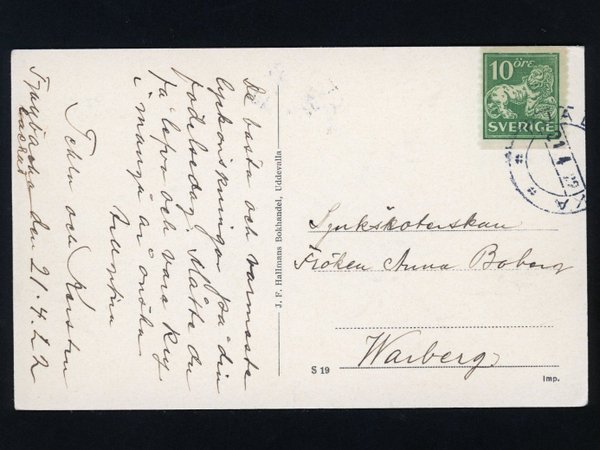 De bästa och varmaste
lyckönskningar på din
födelsedag. Måtte du
få lefva och vara kry
i många år önska
Tekla och Kersten
den 21.4.22
J. F. Hallmans Bokhandel, Uddevalla
10 ÖRE
SVERIGE
Sjuksköterskan
Fröken Anna Boberg
Warberg
S 19
Imp.